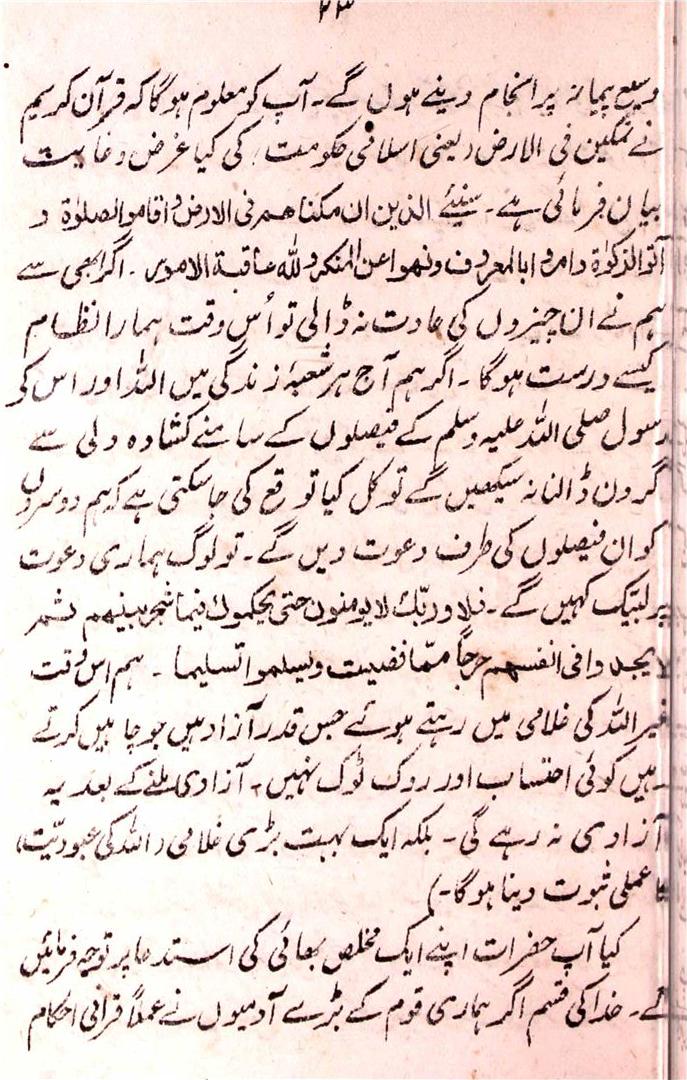 ۲۳
وسیع پیمانہ پر انجام دینے ہوں گے۔ آپ کو معلوم ہوگا کہ قرآن کریم
نے تمکین فی الارض (یعنی اسلامی حکومت) کی کیا غرض و غایت
بیان فرمائی ہے۔ سنیئے الذین ان مکناھم فی الارض اقاموا لصلوٰۃ و
آتوا الذکوٰۃ وامروا بالمعروف ونھوا عن المنکر وللہ عاقبۃ الامور۔ اگر ابھی سے
ہم نے ان چیزوں کی عادت نہ ڈالی تو اُس وقت ہمارا نظام
کیسے درست ہوگا۔ اگر ہم آج ہر شعبۂ زندگی میں اللہ اور اس کے
رسول صلی اللہ علیہ وسلم کے فیصلوں کے سامنے کشادہ دلی سے
گردن ڈالنا نہ سیکھیں گے تو کل کیا توقع کی جاسکتی ہے کہ ہم دوسروں
کو ان فیصلوں کی طرف دعوت دیں گے۔ تو لوگ ہماری دعوت
پر لبّیک کہیں گے۔ فلا وربّک لا یومنون حتیٰ یحکموک فیما شجر بینھم ثم
لا یجدوا فی انفسھم حرجاً ممّا قضیت ویسلموا تسلیما۔ ہم اس وقت
غیر اللہ کی غلامی میں رہتے ہوئے جس قدر آزاد ہیں جو چاہیں کرتے
رہیں کوئی احتساب اور روک ٹوک نہیں۔ آزادی ملنے کے بعد یہ
آزادی نہ رہے گی۔ بلکہ ایک بہت بڑی غلامی (اللہ کی عبودیّت)
کا عملی ثبوت دینا ہوگا۔)
کیا آپ حضرات اپنے ایک مخلص بھائی کی استدعا پر توجہ فرمائیں
گے۔ خدا کی قسم اگر ہماری قوم کے بڑے آدمیوں نے عملاً قرآنی احکام